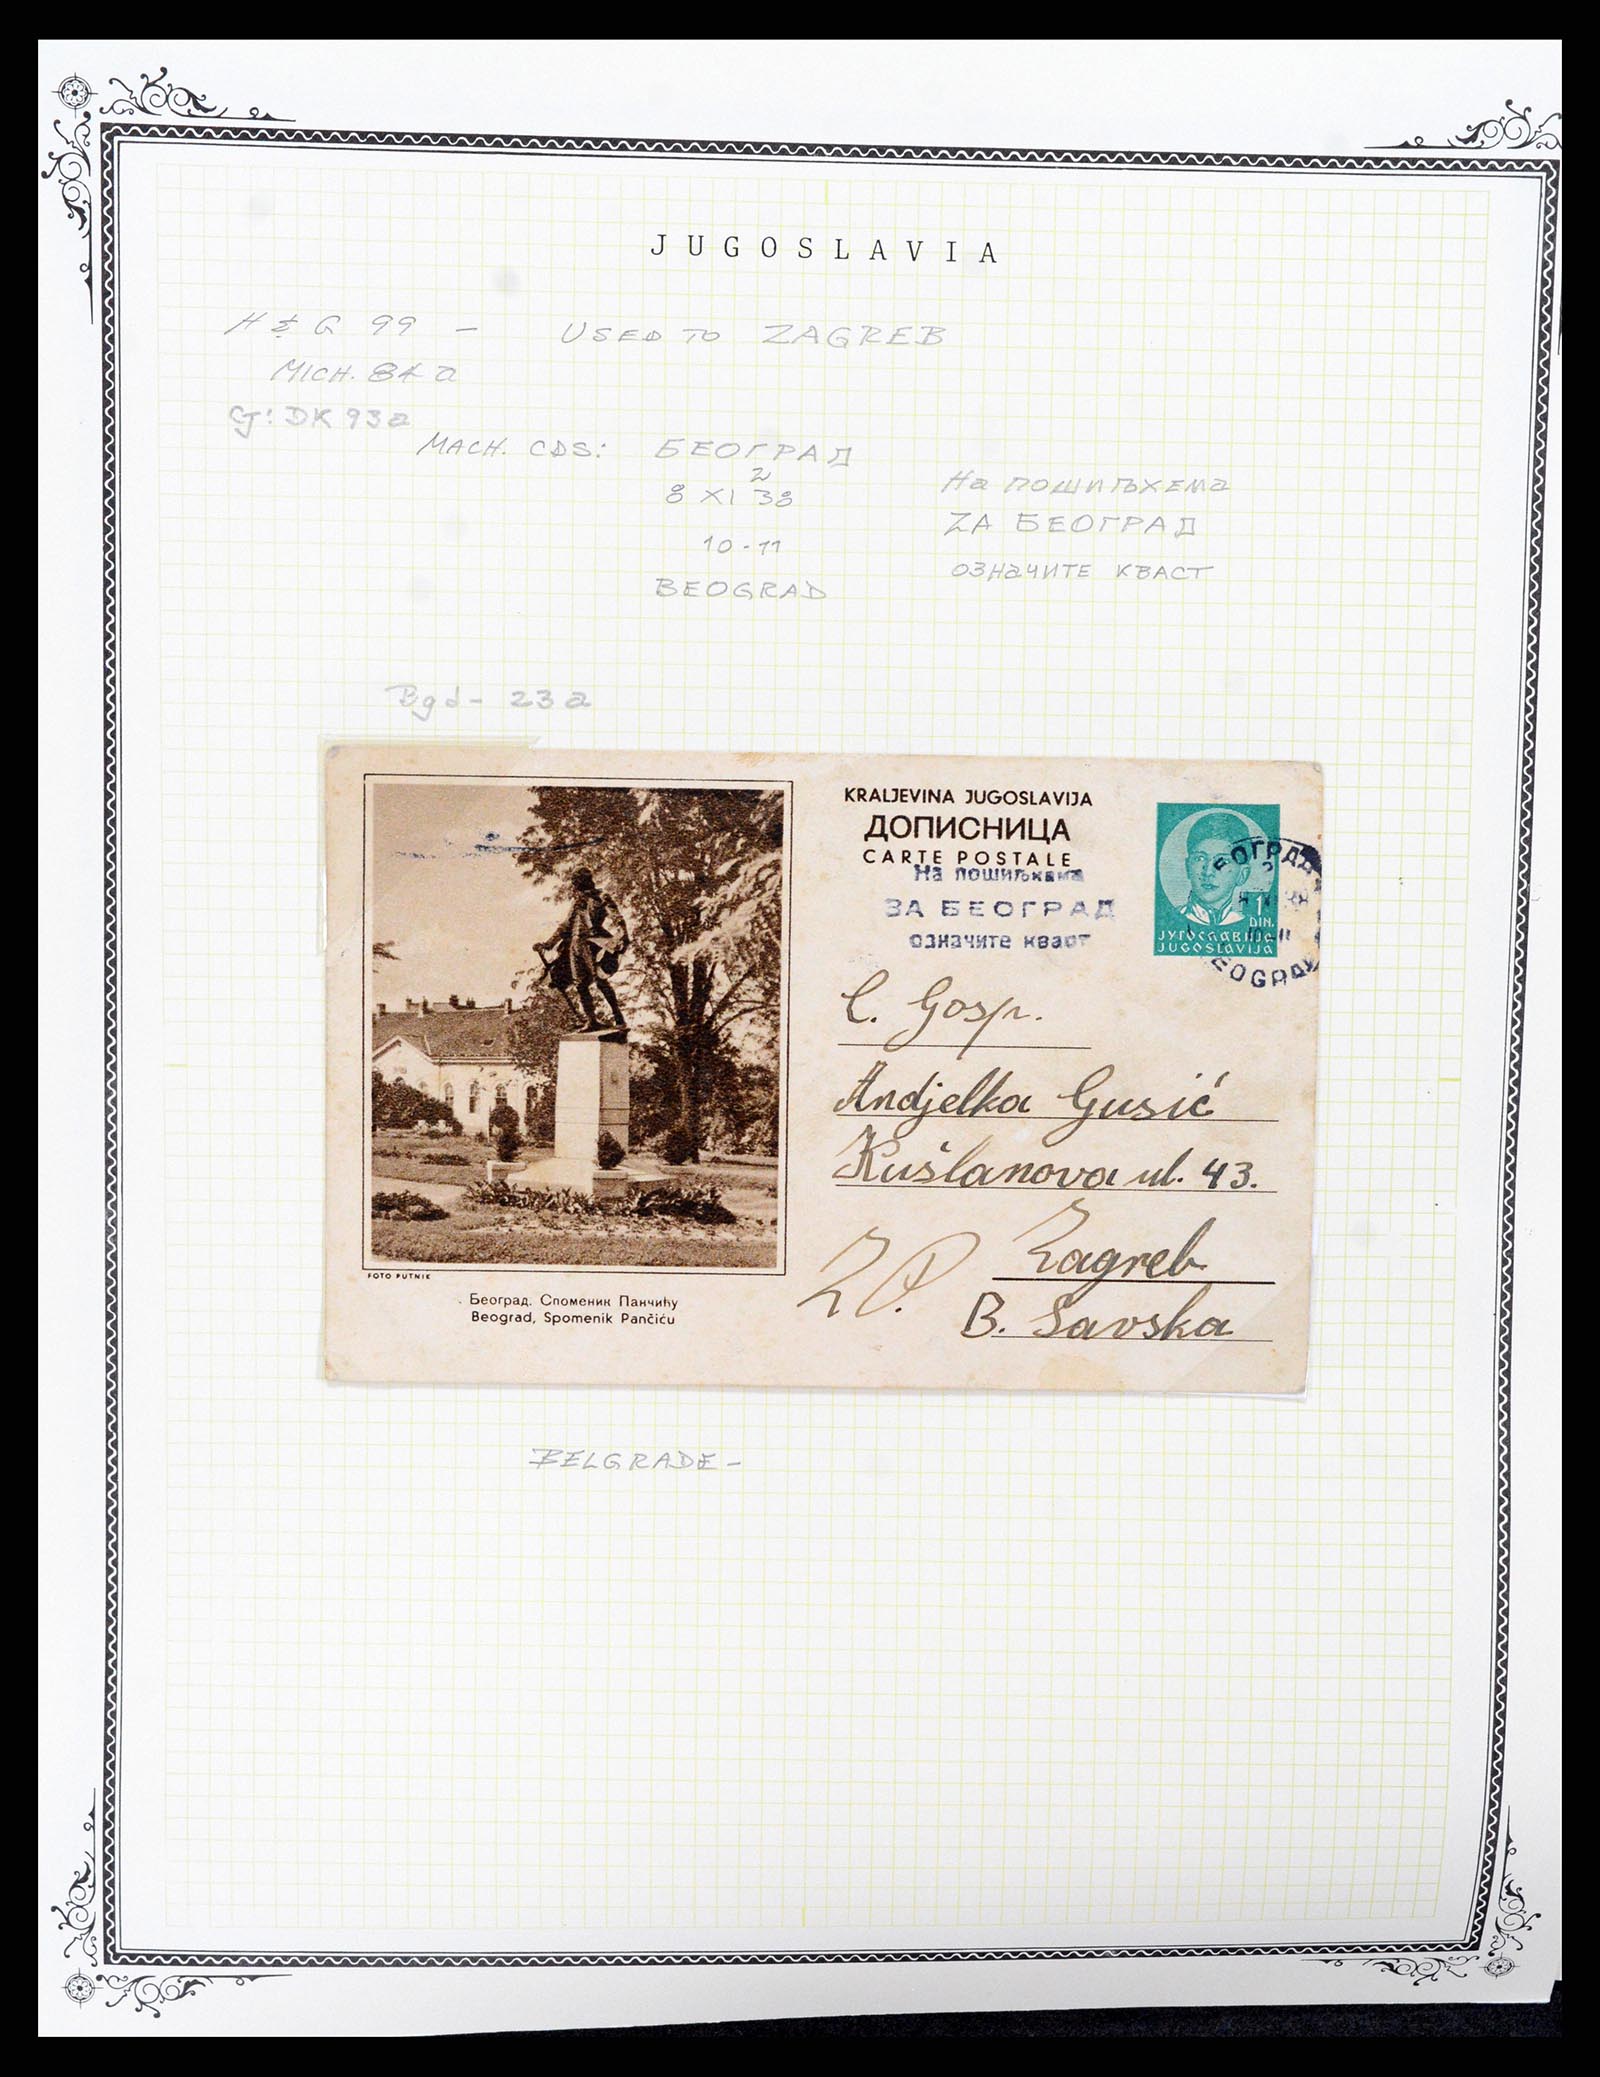 JUGOSLAVIA
H & G 99 - USED TO ZAGREB
MICH. 84 a
Cj: DK 93a
MACH. CDS: БЕОГРАД
2
8 XI 38
10-11
BEOGRAD
На пошиљхема
ZA БЕОГРАД
означите кваст
Bgd - 23a
KRALJEVINA JUGOSLAVIJA
ДОПИСНИЦА
CARTE POSTALE
На пошиљкама
ЗА БЕОГРАД
означите кварт
1
DIN.
ЈУГОСЛАВИЈА
JUGOSLAVIJA
БЕОГРАД
2
8 XI 38
10-11
BEOGRAD
C. Gosp.
Andjelka Gusić
Kušlanova ul. 43.
Zagreb
B. Savska
FOTO PUTNIK
Београд. Споменик Панчићу
Beograd, Spomenik Pančiću
BELGRADE -